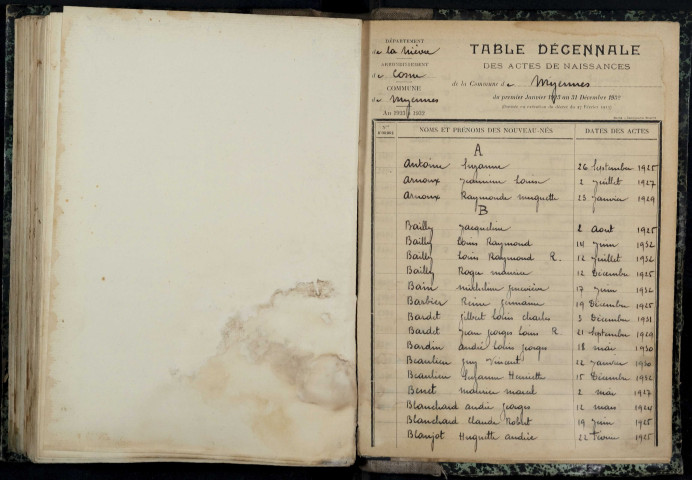 DÉPARTEMENT
de la Nièvre
ARRONDISSEMENT
de Cosne
COMMUNE
de Myennes
An 1923 à 1932
TABLE DÉCENNALE
DES ACTES DE NAISSANCES
de la Commune de Myennes
du premier Janvier 1923 au 31 Décembre 1932
NOMS ET PRÉNOMS DES NOUVEAU-NÉS DATES DES ACTES
A
Antoine Suzanne 26 Septembre 1925
Arnoux Jeannine Louise 2 Juillet 1927
Arnoux Raymonde muguette 23 Janvier 1929
B
Bailly Jacqueline 2 Aout 1925
Bailly Louis Raymond 14 Juin 1932
Bailly Louis Raymond R. 12 Juillet 1932
Bailly Roger maurice 12 Decembre 1925
Bain micheline geneviève 17 Juin 1932
Barbier Reine germaine 19 Décembre 1925
Bardet gilbert Louis charles 3 Décembre 1931
Bardet Jean georges Louis R. 21 Septembre 1929
Bardin andré Louis georges 18 mai 1930
Beaulieu guy Vincent 22 Janvier 1930
Beaulieu Suzanne Henriette 15 Décembre 1932
Benet maurice marcel 2 mai 1927
Blanchard andré georges 12 mars 1924
Blanchard Claude Robert 19 Juin 1925
Blanjot Huguette andrée 22 1925